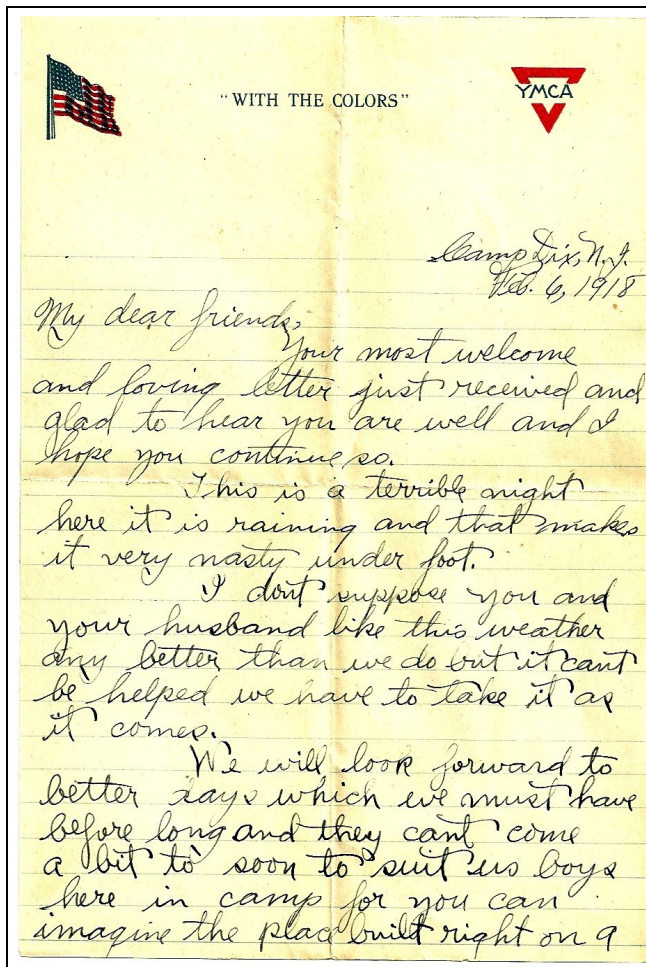 "WITH THE COLORS"
YMCA
Camp Dix, N.J.
Feb. 6, 1918
My dear friends,
Your most welcome
and loving letter just received and
glad to hear you are well and I
hope you continue so.
This is a terrible night
here it is raining and that makes
it very nasty under foot.
I dont suppose you and
your husband like this weather
any better than we do but it cant
be helped we have to take it as
it comes.
We will look forward to
better days which we must have
before long and they cant come
a bit to soon to suit us boys
here in camp for you can
imagine the place built right on a